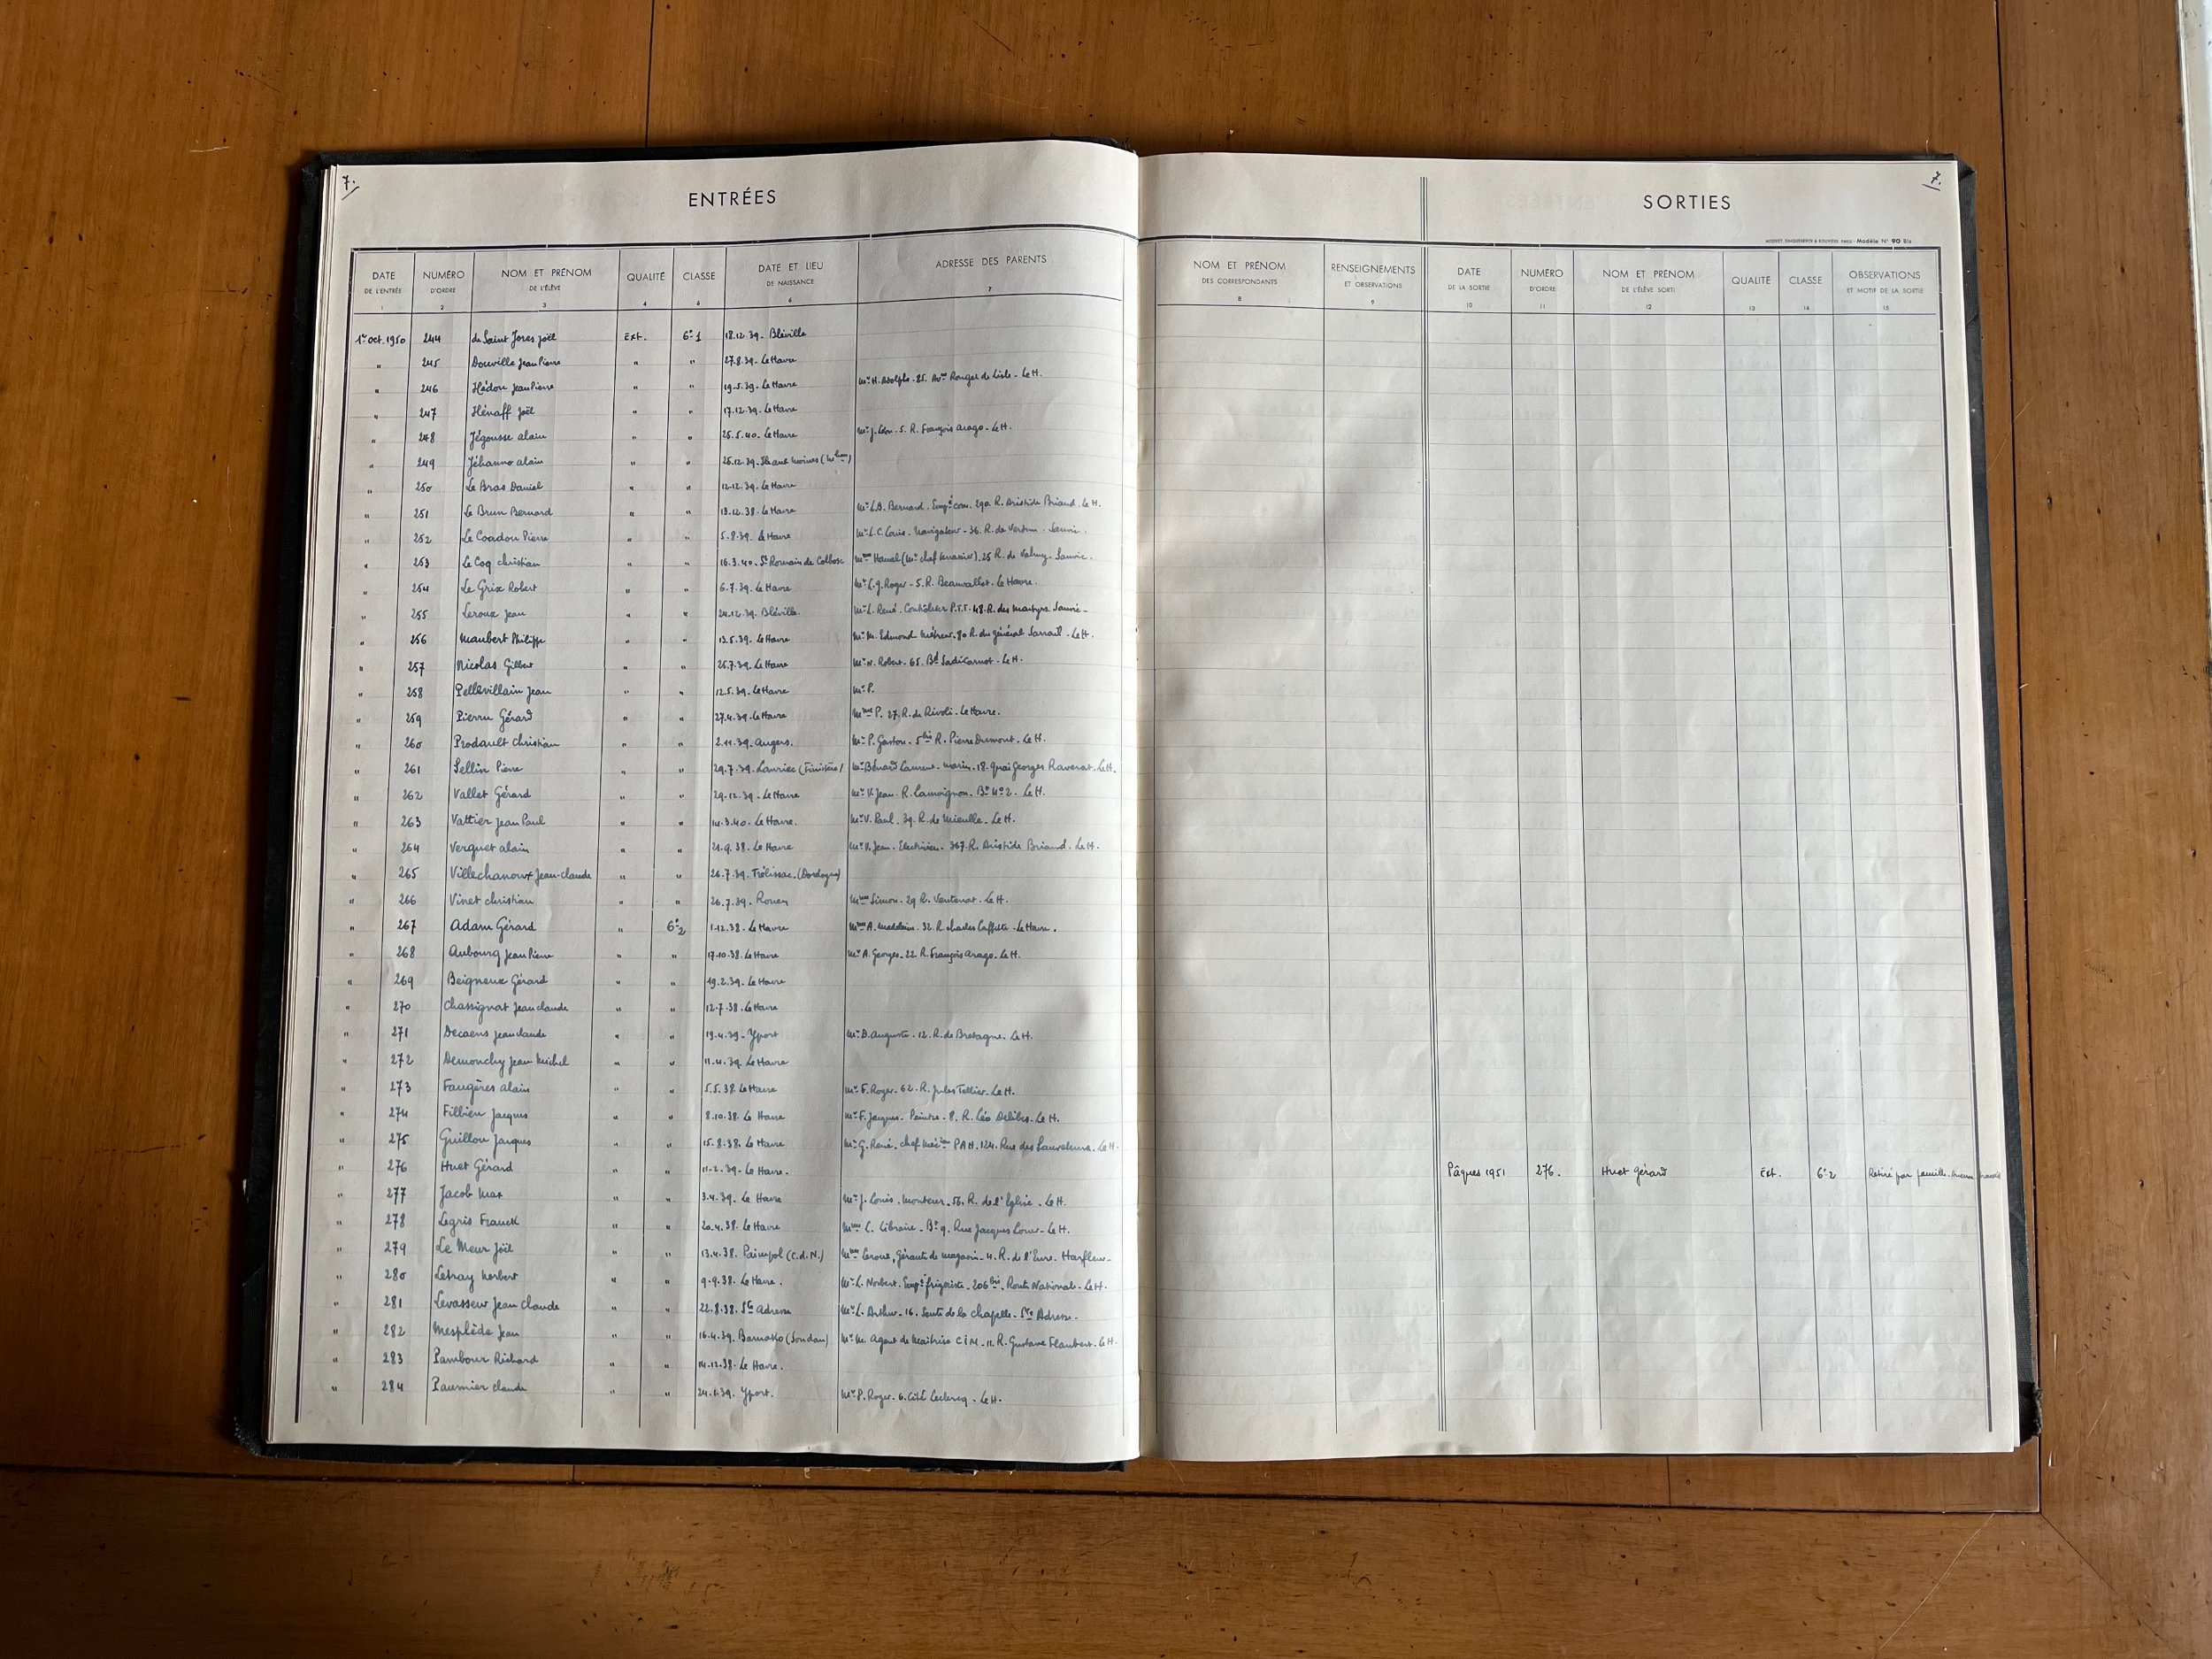 7.
ENTRÉES
DATE DE L'ENTRÉE 1 NUMÉRO D'ORDRE 2 NOM ET PRÉNOM DE L'ÉLÈVE 3 QUALITÉ 4 CLASSE 5 DATE ET LIEU DE NAISSANCE 6 ADRESSE DES PARENTS 7
1er oct. 1950 244 de Saint Jores Joël Ext. 6e 1 18.12.39. Bléville
" 245 Douville Jean Pierre " " 27.8.39. Le Havre
" 246 Hédou Jean Pierre " " 19.5.39. Le Havre Mr H. Adolphe. 25. Avue Rouget de Lisle. Le H.
" 247 Hénaff Joël " " 17.12.39. Le Havre
" 248 Jégousse Alain " " 25.5.40. Le Havre Mr J. Léon. 5. R. François Arago. Le H.
" 249 Jéhanno Alain " " 25.12.39. Ile aux Moines (Mbihan)
" 250 Le Bras Daniel " " 12.12.39. Le Havre
" 251 Le Brun Bernard " " 13.12.38. Le Havre Mr L.B. Bernard. Empé com. 290. R. Aristide Briand. Le H.
" 252 Le Coadou Pierre " " 5.8.39. Le Havre Mr L.C. Louis. Navigateur. 36. R. de Verdun. Sanvic.
" 253 Le Coq Christian " " 16.3.40. St Romain de Colbosc Mme Hamel (Mr chef) 25 R. de Valmy. Sanvic.
" 254 Le Grix Robert " " 6.7.39. Le Havre Mr L.G. Roger. 5. R. Beauvallet. Le Havre.
" 255 Leroux Jean " " 24.12.39. Bléville. Mr L. René. Contrôleur P.T.T. 48. R. des Martyrs. Sanvic.
" 256 Maubert Philippe " " 13.5.39. Le Havre Mr M. Edmond Métreur. 80 R. du général Sarrail. Le H.
" 257 Nicolas Gilbert " " 25.7.39. Le Havre Mr N. Robert. 65. Bd Sadi Carnot. Le H.
" 258 Pellevillain Jean " " 12.5.39. Le Havre Mr P.
" 259 Pierru Gérard " " 27.4.39. Le Havre Mme P. 27. R. de Rivoli. Le Havre.
" 260 Prodault Christian " " 2.11.39. Angers. Mr P. Gaston. 5bis R. Pierre Dumont. Le H.
" 261 Sellin Pierre " " 29.7.39. Lanriec (Finistère) Mr Bénard Laurent. marin. 18. Quai Georges Raverat. Le H.
" 262 Vallet Gérard " " 29.12.39. Le Havre Mr V. Jean. R. Lamoignon. Bt 4e 2. Le H.
" 263 Vattier Jean Paul " " 14.3.40. Le Havre. Mr V. Paul. 39. R. de Mieulle. Le H.
" 264 Verguet Alain " " 21.9.38. Le Havre Mr V. Jean. Electricien. 367. R. Aristide Briand. Le H.
" 265 Villechanoux Jean-Claude " " 26.7.39. Trélissac. (Dordogne)
" 266 Vinet Christian " " 26.7.39. Rouen Mme Simon. 29 R. Ventenat. Le H.
" 267 Adam Gérard " 6e 2 1.12.38. Le Havre Mme A. Madeleine. 32. R. Charles Laffitte. Le Havre.
" 268 Aubourg Jean Pierre " " 17.10.38. Le Havre Mr A. Georges. 22. R. François Arago. Le H.
" 269 Beigneux Gérard " " 19.2.39. Le Havre
" 270 Chassignat Jean Claude " " 12.7.38. Le Havre
" 271 Decaens Jean Claude " " 19.4.39. Yport Mr D. Auguste. 12. R. de Bretagne. Le H.
" 272 Demonchy Jean Michel " " 11.4.39. Le Havre
" 273 Faugères Alain " " 5.5.38 Le Havre Mr F. Roger. 62. R. Jules Tellier. Le H.
" 274 Fillien Jacques " " 8.10.38. Le Havre Mr F. Jacques. Peintre. 8. R. Léo Delibes. Le H.
" 275 Guillou Jacques " " 15.8.38. Le Havre Mr G. René. chef PAH. 124. Rue des Sauveteurs. Le H.
" 276 Huet Gérard " " 11.2.39. Le Havre.
" 277 Jacob Max " " 3.4.39. Le Havre Mr J. Louis. Monteur. 56. R. de l'Eglise. Le H.
" 278 Legris Franck " " 20.4.38. Le Havre Mme L. Libraire. Bt 9. Rue Jacques Louer. Le H.
" 279 Le Meur Joël " " 13.4.38. Paimpol (C.d.N.) Mme Leroux, Gérante de magasin. 4. R. de l'Eure. Harfleur.
" 280 Letray Norbert " " 9.9.38. Le Havre. Mr L. Norbert. Empé frigoriste. 206bis. Route Nationale. Le H.
" 281 Levasseur Jean Claude " " 22.8.38. Ste Adresse Mr L. Arthur. 16. Sente de la Chapelle. Ste Adresse.
" 282 Mesplède Jean " " 16.4.39. Bamako (Soudan) Mr M. Agent de Maîtrise CIM. 11. R. Gustave Flaubert. Le H.
" 283 Pambour Richard " " 14.12.38. Le Havre.
" 284 Paumier Claude " " 24.1.39. Yport. Mr P. Roger. 6. Cité Leclercq. Le H.
7.
SORTIES
Modèle N° 90 Bis
NOM ET PRÉNOM DES CORRESPONDANTS 8 RENSEIGNEMENTS ET OBSERVATIONS 9 DATE DE LA SORTIE 10 NUMÉRO D'ORDRE 11 NOM ET PRÉNOM DE L'ÉLÈVE SORTI 12 QUALITÉ 13 CLASSE 14 OBSERVATIONS ET MOTIF DE LA SORTIE 15
Pâques 1951 276. Huet Gérard Ext. 6e 2 Retiré par famille. Aucun travail